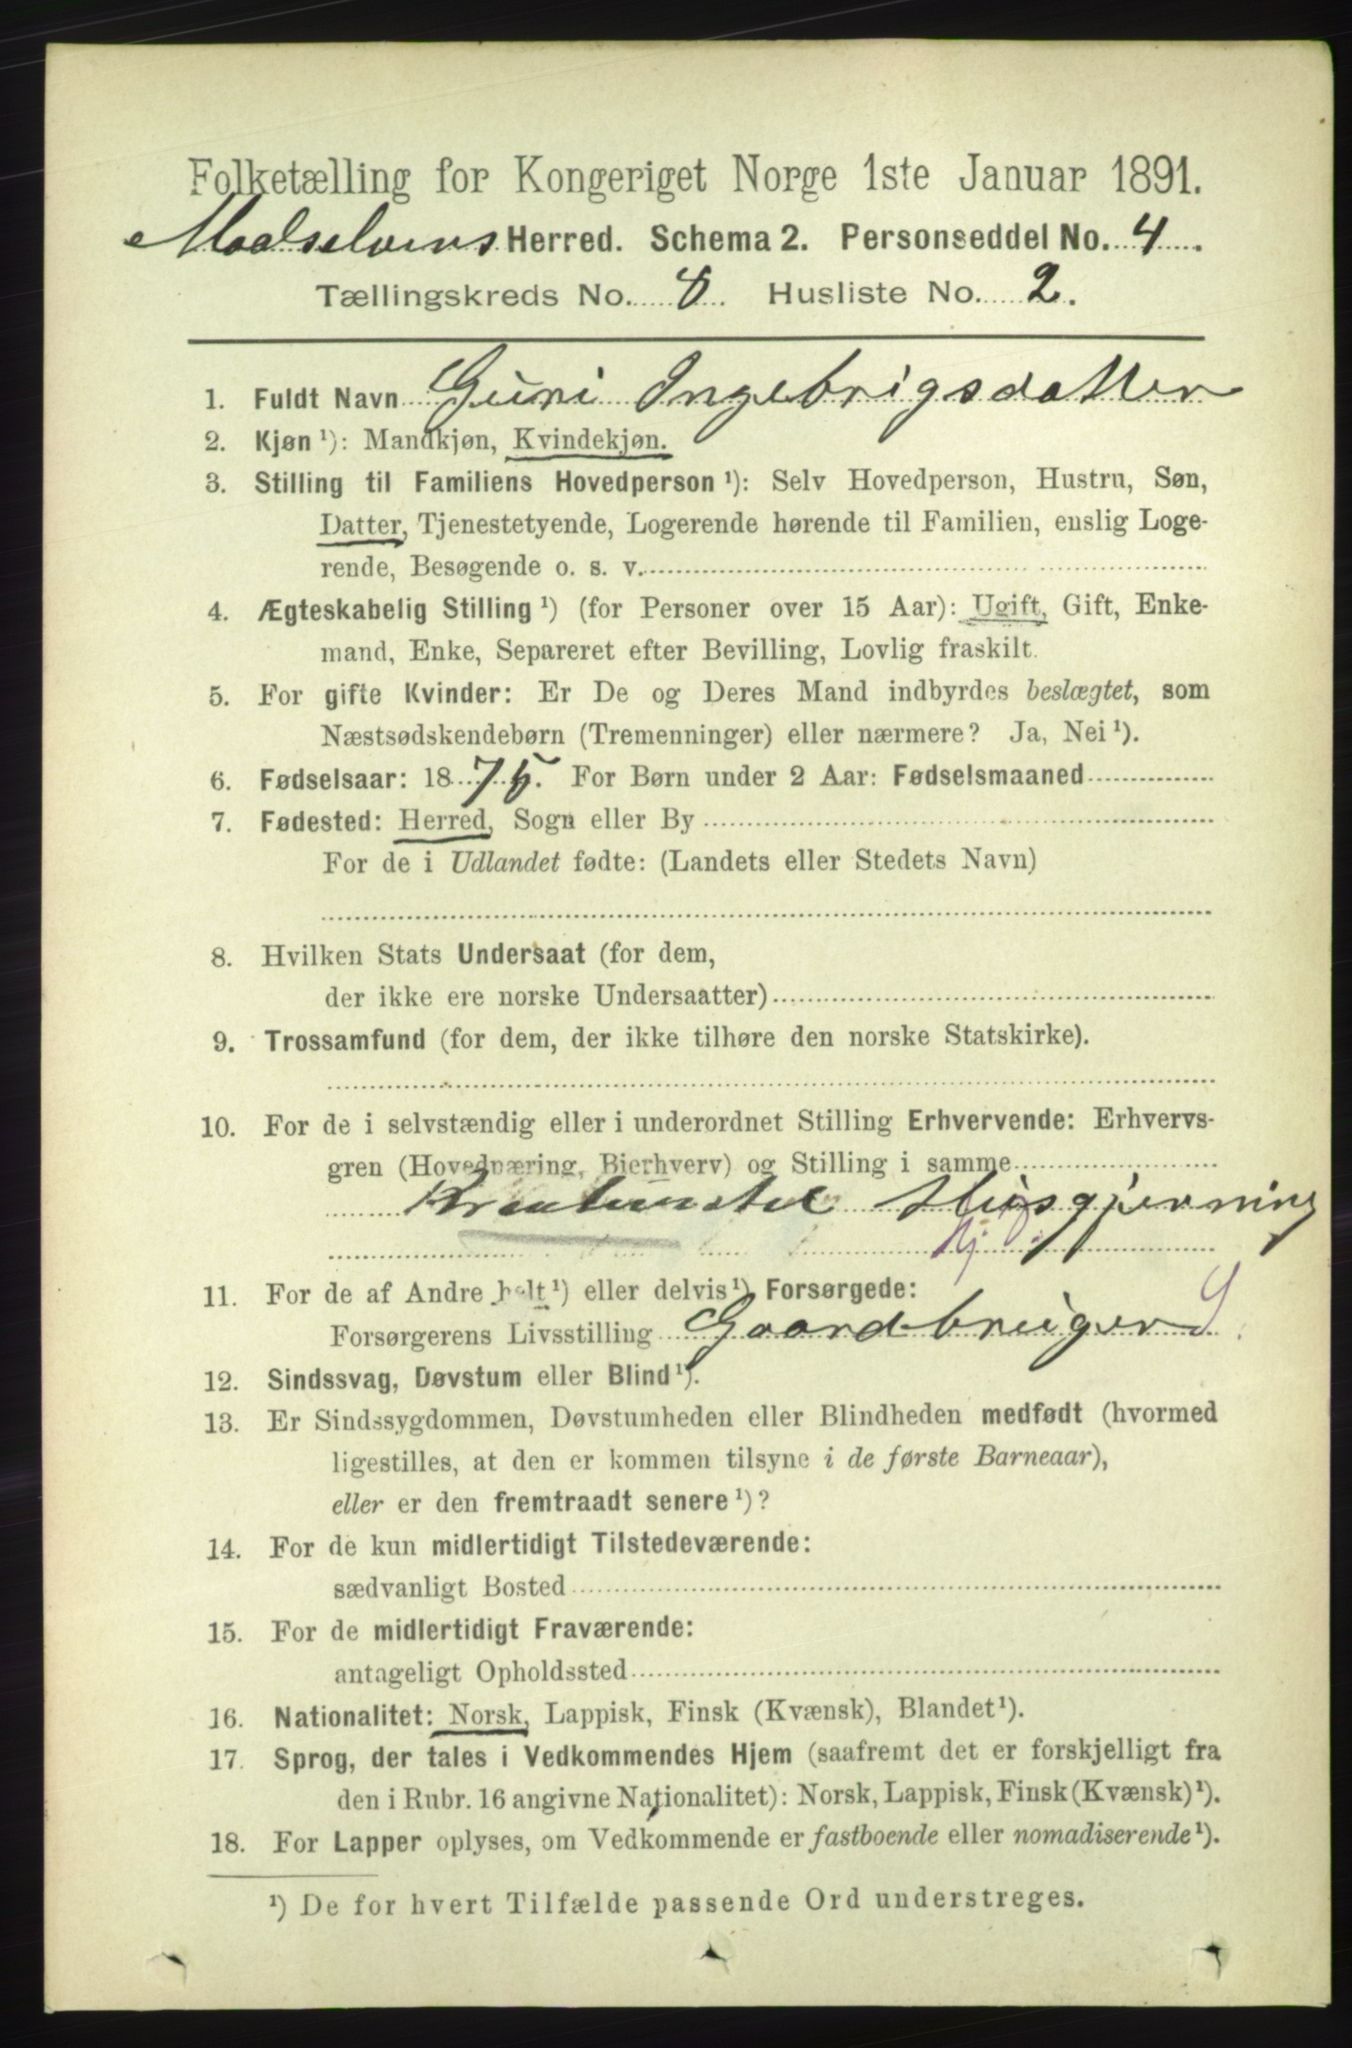 Folketælling for Kongeriget Norge 1ste Januar 1891.
Maalselvens Herred. Schema 2. Personseddel No. 4.
Tællingskreds No. 8 Husliste No. 2.
1. Fuldt Navn Guri Ingebrigsdatter
2. Kjøn ¹): Mandkjøn, Kvindekjøn.
3. Stilling til Familiens Hovedperson ¹): Selv Hovedperson, Hustru, Søn,
Datter, Tjenestetyende, Logerende hørende til Familien, enslig Loge-
rende, Besøgende o. s. v.
4. Ægteskabelig Stilling ¹) (for Personer over 15 Aar): Ugift, Gift, Enke-
mand, Enke, Separeret efter Bevilling, Lovlig fraskilt.
5. For gifte Kvinder: Er De og Deres Mand indbyrdes beslægtet, som
Næstsødskendebørn (Tremenninger) eller nærmere? Ja, Nei ¹).
6. Fødselsaar: 1875. For Børn under 2 Aar: Fødselsmaaned
7. Fødested: Herred, Sogn eller By
For de i Udlandet fødte: (Landets eller Stedets Navn)
8. Hvilken Stats Undersaat (for dem,
der ikke ere norske Undersaatter)
9. Trossamfund (for dem, der ikke tilhøre den norske Statskirke).
10. For de i selvstændig eller i underordnet Stilling Erhvervende: Erhvervs-
gren (Hovednæring, Bierhverv) og Stilling i samme
Husgjerning
11. For de af Andre helt ¹) eller delvis ¹) Forsørgede:
Forsørgerens Livsstilling Gaardbruger S.
12. Sindssvag, Døvstum eller Blind ¹).
13. Er Sindssygdommen, Døvstumheden eller Blindheden medfødt (hvormed
ligestilles, at den er kommen tilsyne i de første Barneaar),
eller er den fremtraadt senere ¹)?
14. For de kun midlertidigt Tilstedeværende:
sædvanligt Bosted
15. For de midlertidigt Fraværende:
antageligt Opholdssted
16. Nationalitet: Norsk, Lappisk, Finsk (Kvænsk), Blandet ¹).
17. Sprog, der tales i Vedkommendes Hjem (saafremt det er forskjelligt fra
den i Rubr. 16 angivne Nationalitet): Norsk, Lappisk, Finsk (Kvænsk) ¹).
18. For Lapper oplyses, om Vedkommende er fastboende eller nomadiserende ¹).
¹) De for hvert Tilfælde passende Ord understreges.